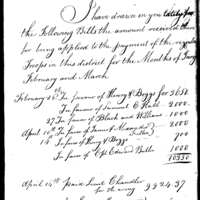 I have drawn on you
the Following Bills the amount received them
for being applied to the payment of the
Troops in this district for the Months of
February and March
February 26th In favor of Henry & Boggs for 3650
In favour of Samuel C Hall 2000.
27 In favor of Black and William 1000.
April 10th In favor of James & 2000
14 In favor of Henry & Boggs 700
In favor of Capt Edward Butler 1000
10350
April 14th paid Lieut Chandler
for the army 9924.37